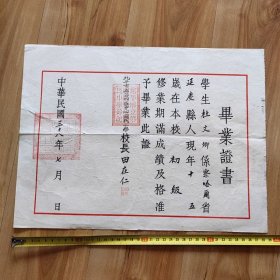 畢業證書
學生杜文卿係察哈爾省
延慶縣人現年十五
歲在本校初級
修業期滿成績及格准
予畢業此證
校長田在仁
中華民國三十八年七月 日